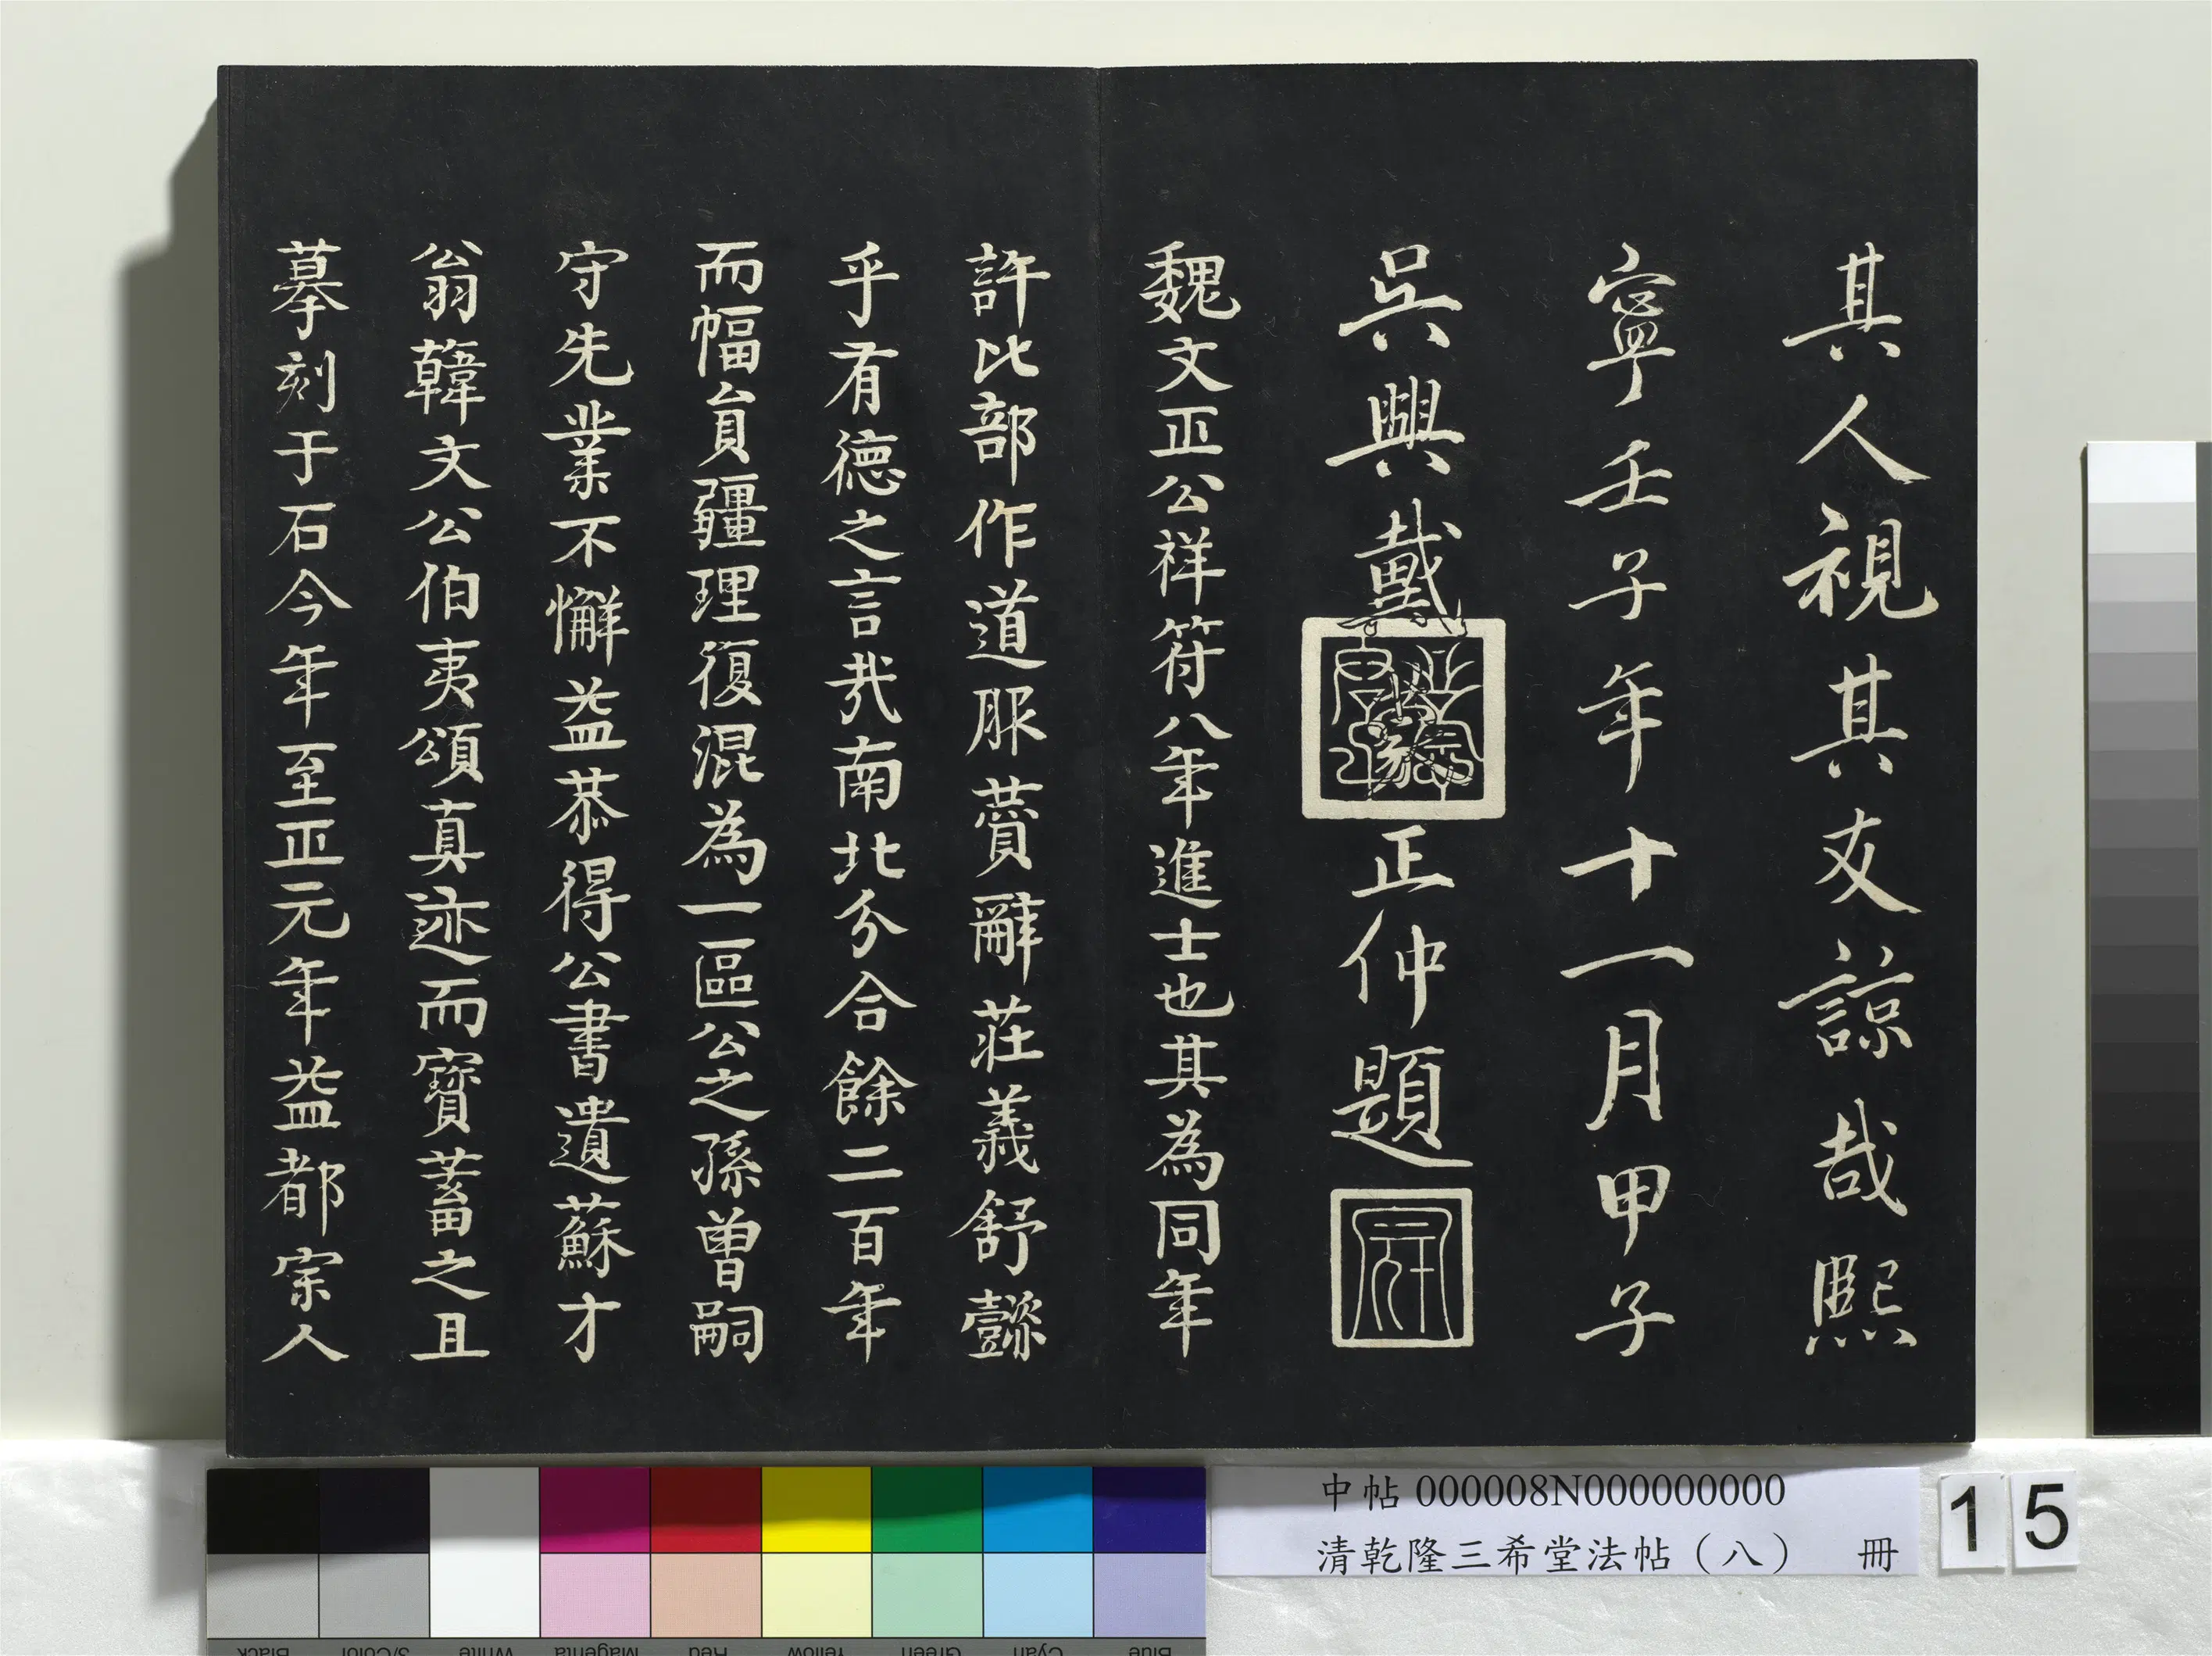 其人視其友諒哉熙
寧壬子年十一月甲子
吳興戴蒙正仲題
魏文正公祥符八年進士也其為同年
許比部作道服賛辭莊義舒懿
乎有德之言㢤南北分合餘二百年
而幅員疆理復混為一區公之孫曾嗣
守先業不懈益恭得公書遺蘇才
翁韓文公伯夷頌真迹而寶蓄之且
摹刻于石今年至正元年益都宗人
中帖 000008N000000000
清乾隆三希堂法帖（八） 冊
15
Black
3/Color
White
Magenta
Red
Yellow
Green
Cyan
Blue